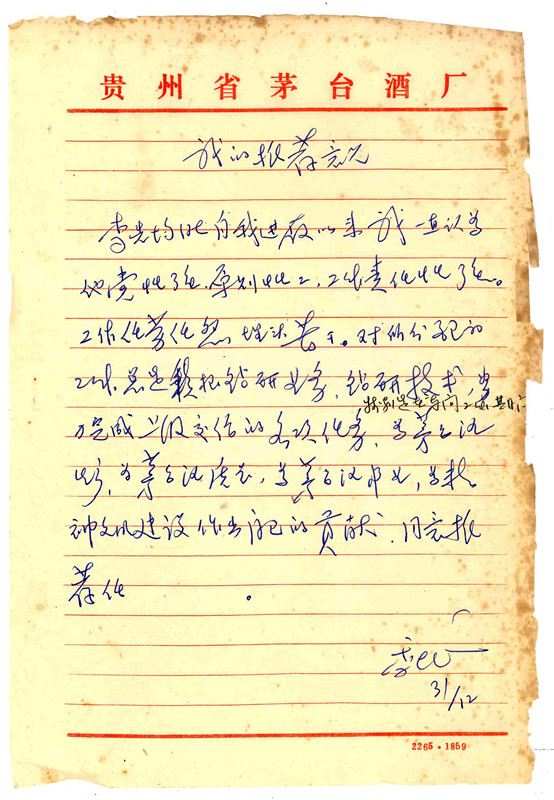 贵州省茅台酒厂
我的推荐意见
李先均同志自我进厂以来我一直认为
他党性强、原则性强、工作责任性强。
工作任劳任怨，埋头苦干。对所分配的
工作总是积极钻研业务，钻研技术，
特别是在导向工
完成上级交给的各次任务，为茅台酒
为茅台酒 为茅台酒 为精
神文明建设作出了自己的贡献，同意推
荐他 。
31/12
2265·1859